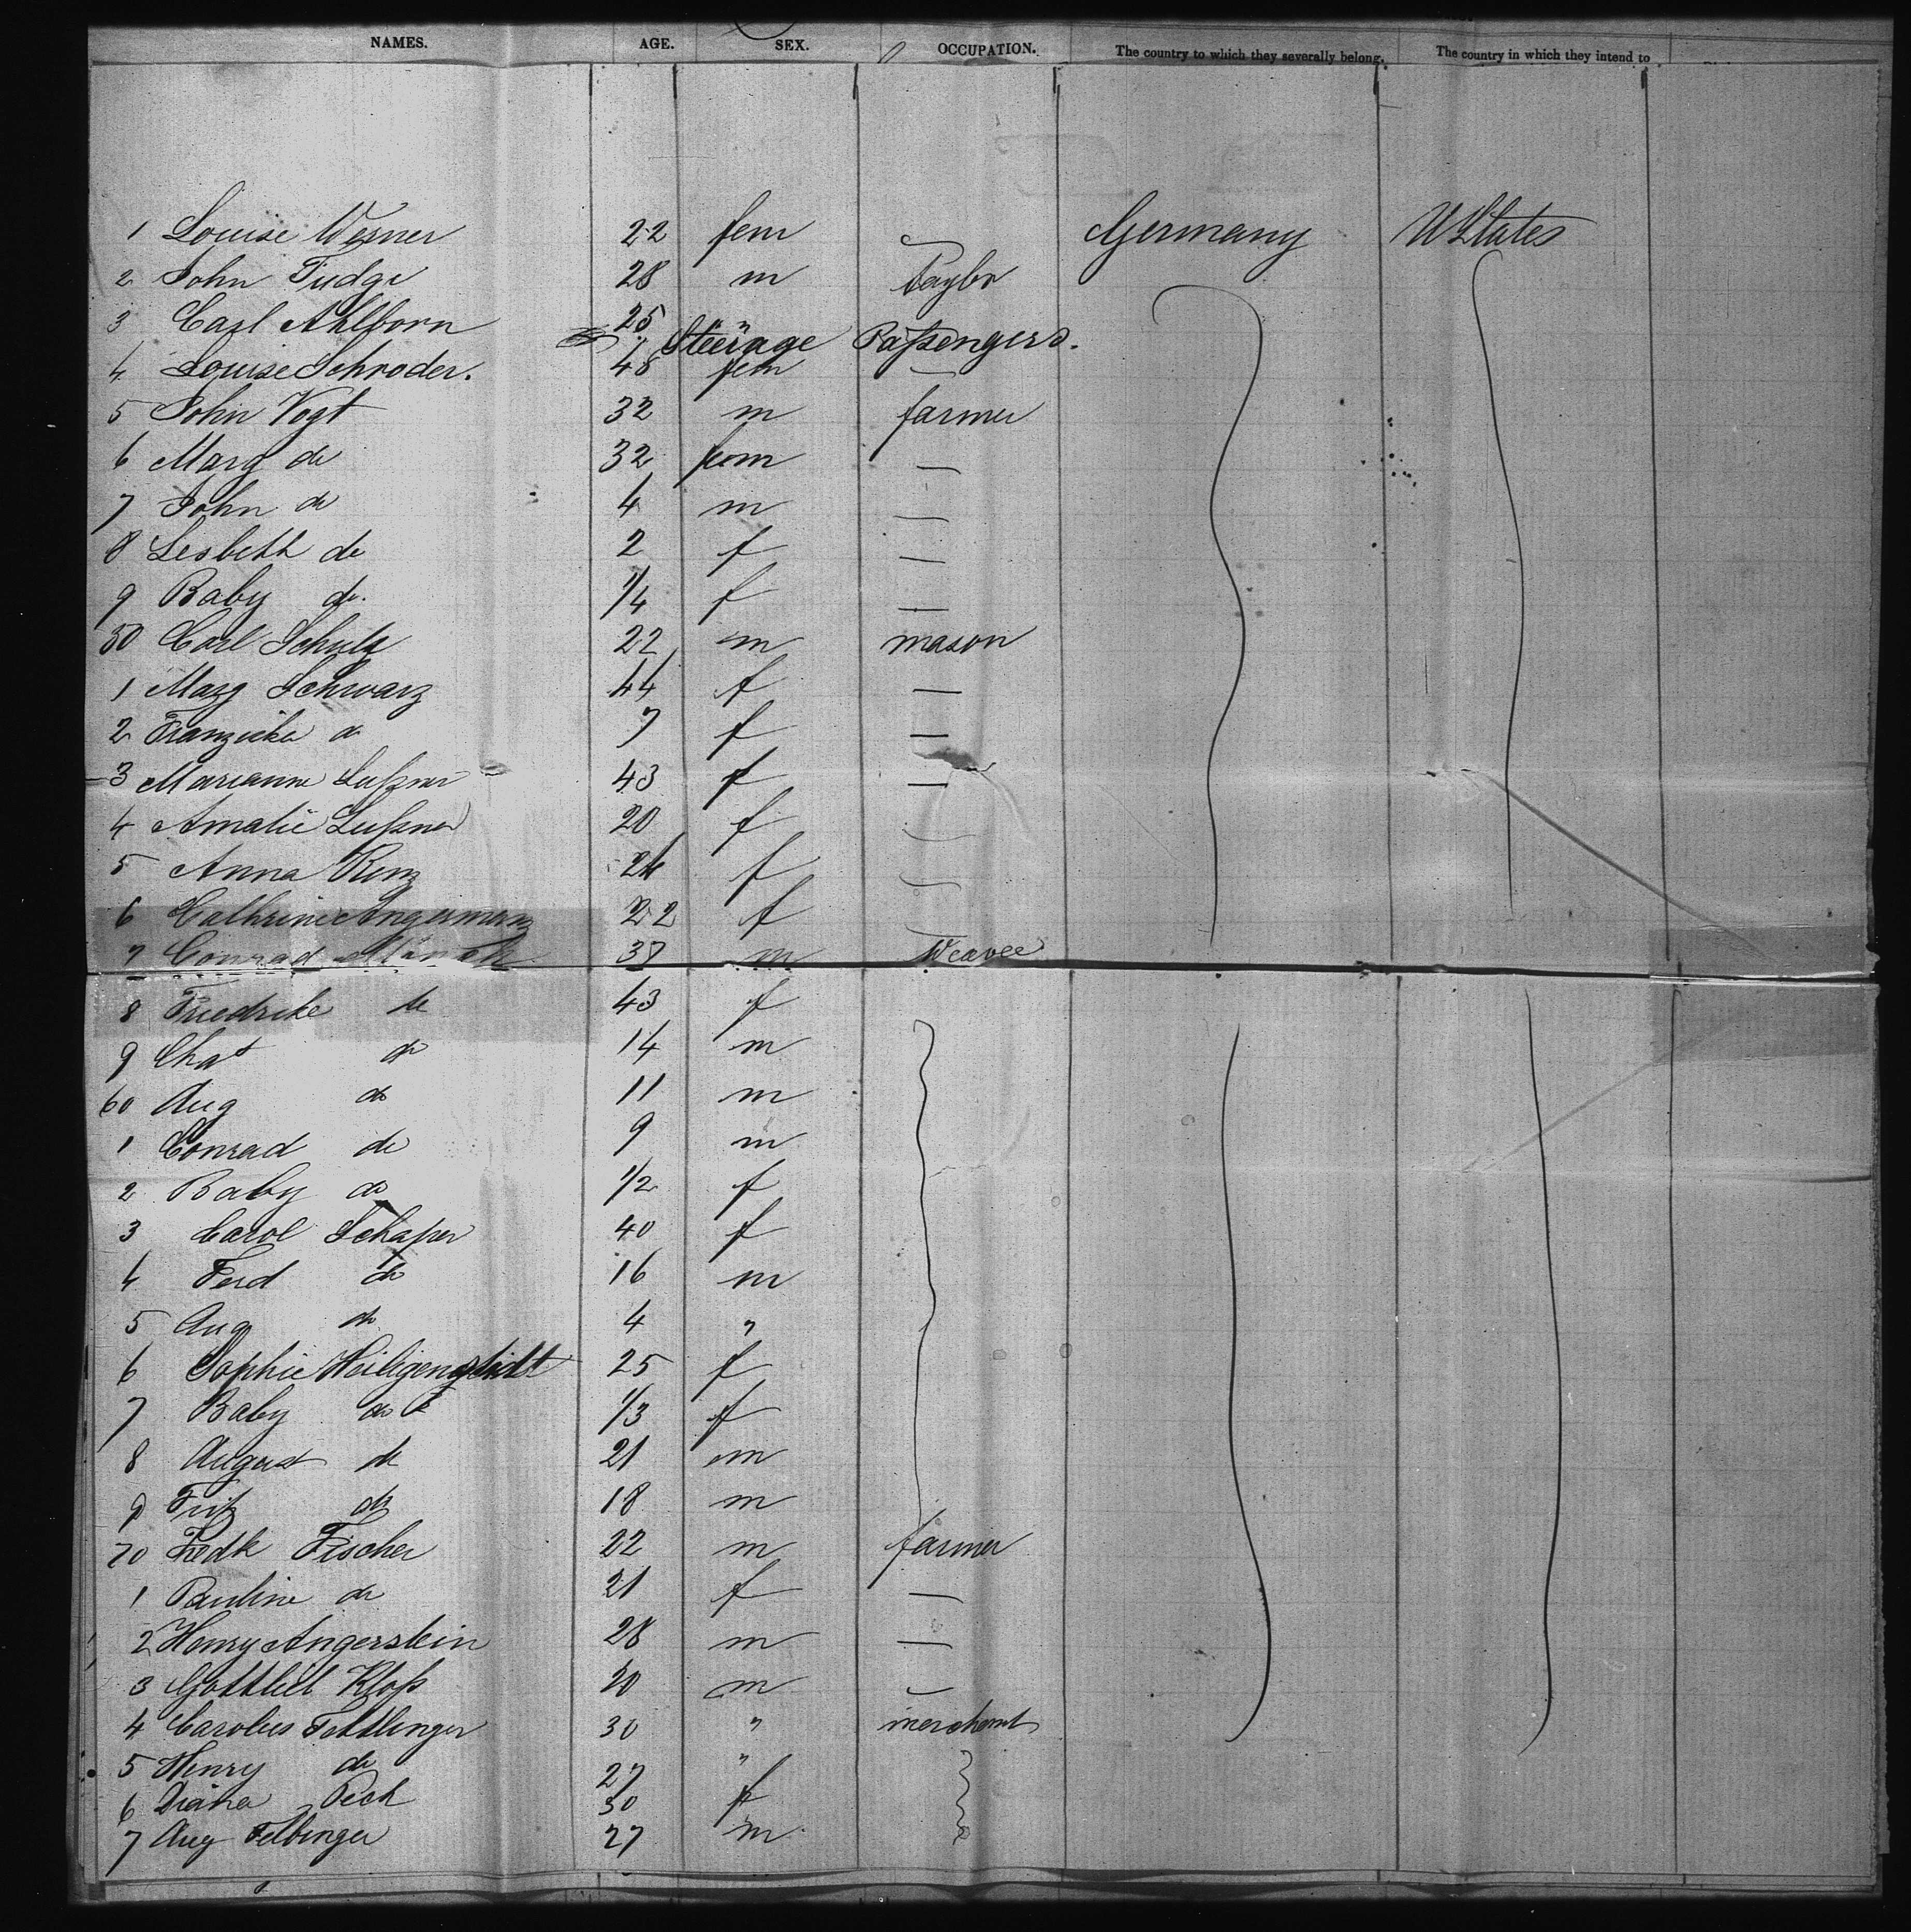 NAMES. AGE. SEX. OCCUPATION. The country to which they severally belong. The country in which they intend to
1 Louise Werner 22 fem Germany U States
2 John Tudge 28 m Taylor
3 Carl Ahlborn 25 "
Steerage Paßengers.
4 Louise Schroder. 48 fem —
5 John Vogt 32 m farmer
6 Marg do 32 fem —
7 John do 4 m —
8 Lesbeth do 2 f —
9 Baby do. 1/4 f —
50 Carl Schulz 22 m mason
1 Marg Schwarz 44 f —
2 Franziska do 7 f —
3 Marianne Lußner 43 f —
4 Amalie Lußner 20 f
5 Anna Renz 24 f
6 Cathrine Angermann 22 f
7 Conrad 37 m Weaver
8 Friedrike do 43 f
9 Chas do 14 m
60 Aug do 11 m
1 Conrad do 9 m
2 Baby do 1/2 f
3 Carol Schaper 40 f
4 Ferd do 16 m
5 Aug do 4 "
6 Sophie Heiligenstädt 25 f
7 Baby do 1/3 f
8 August do 21 m
9 Fritz do 18 m
70 Fredk Fischer 22 m farmer
1 Pauline do 21 f —
2 Henry Angerstein 28 m —
3 Gottlieb Kloß 20 m —
4 Carolus 30 " merchant
5 Henry do 27 "
6 Diana Pech 30 f
7 Aug Felbinger 27 m